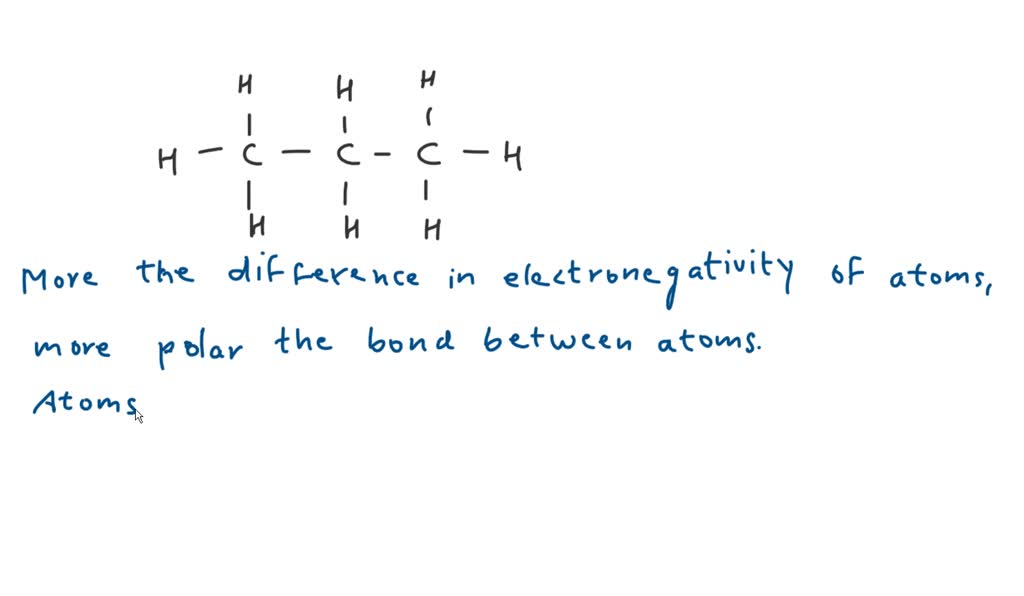 H H H
| | |
H - C - C - C - H
| | |
H H H
More the difference in electronegativity of atoms,
more polar the bond between atoms.
Atoms